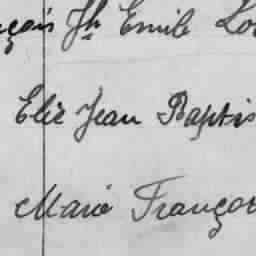 çois Jh Emile Lo
Elie Jean Baptis
Marie Françoi